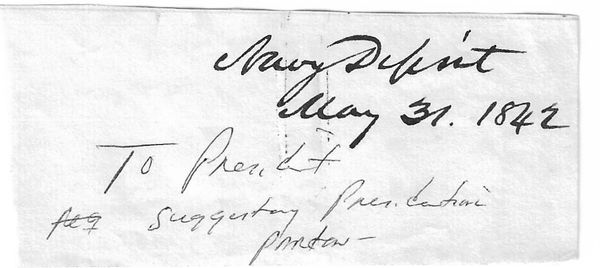 Navy Depmt
May 31. 1842
To President
suggesting Presidential
pardon -